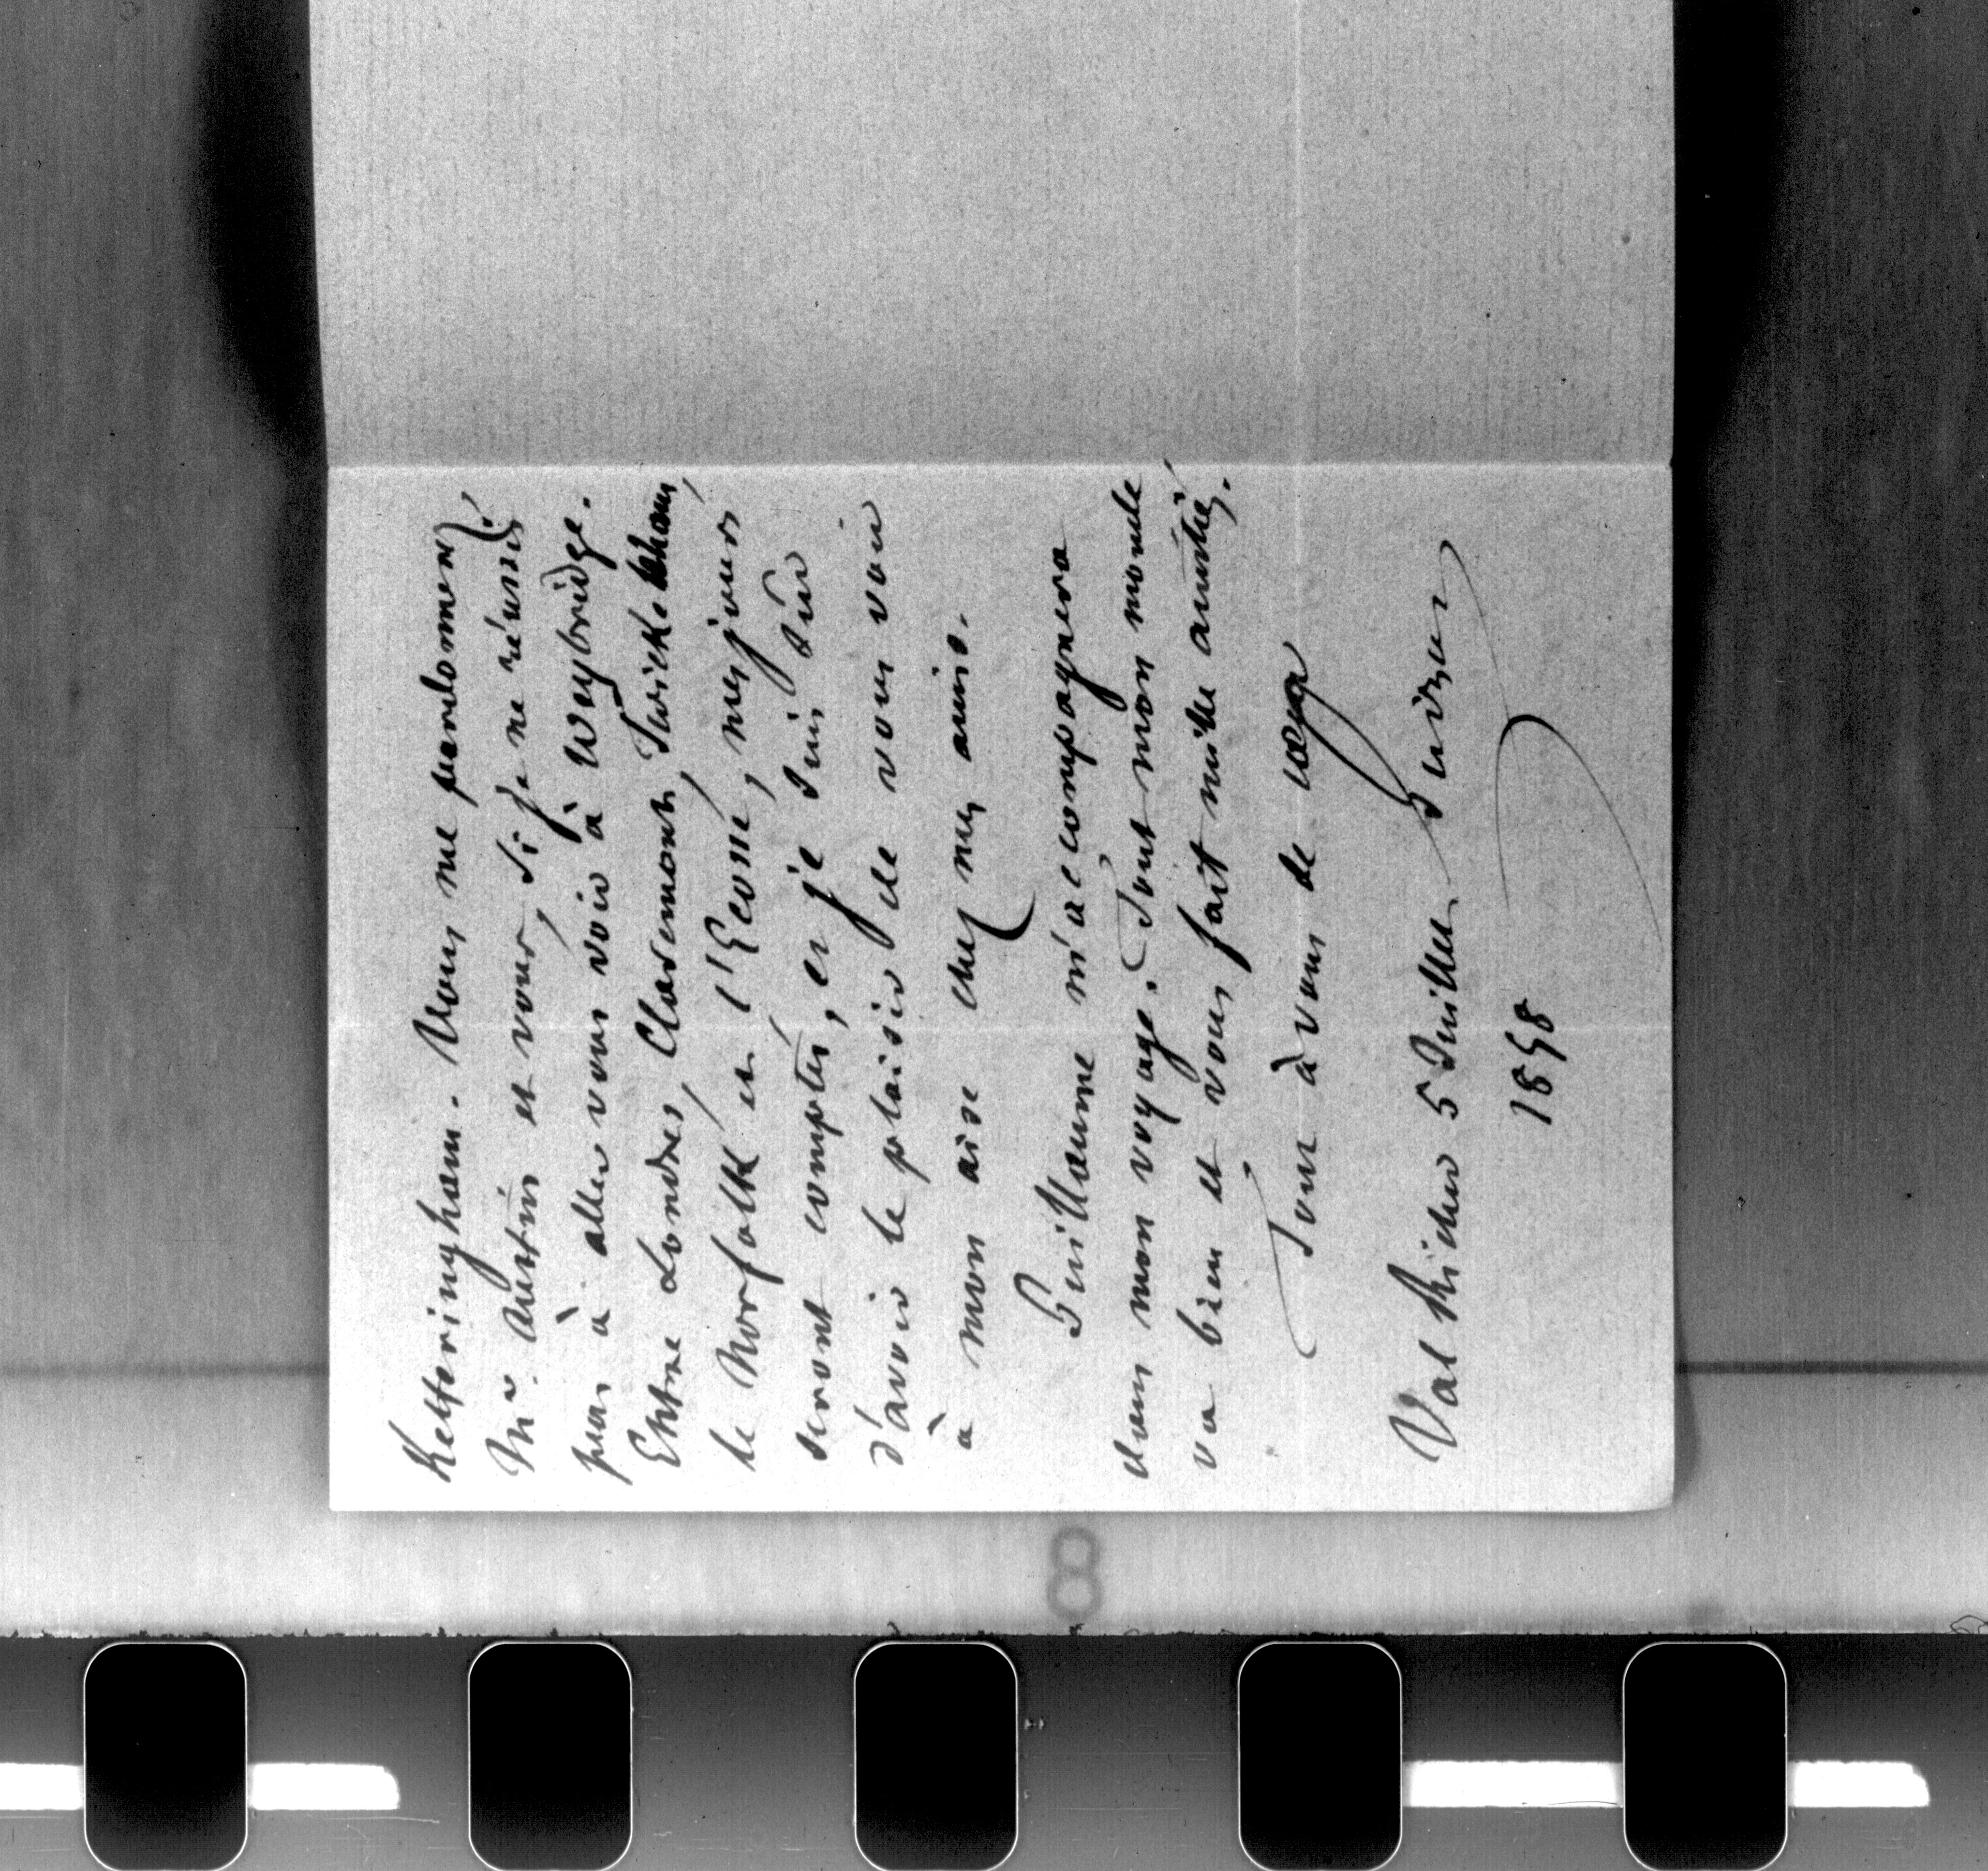 Ketteringham. Vous me pardonnerez,
Mr. Austin et vous, si je ne réussis
pas à aller vous voir à Weybridge.
Entre Londres, Claremont, Twickenham,
le Norfolk et l'Ecosse, mes jours
seront comptés, et je suis sûr
d'avoir le plaisir de vous voir
à mon aise chez mes amis.
Guillaume m'accompagnera
dans mon voyage. Tout mon monde
va bien et vous fait mille amitiés.
Tout à vous de cœur
Guizot
Val Richer 5 Juillet
1858
8